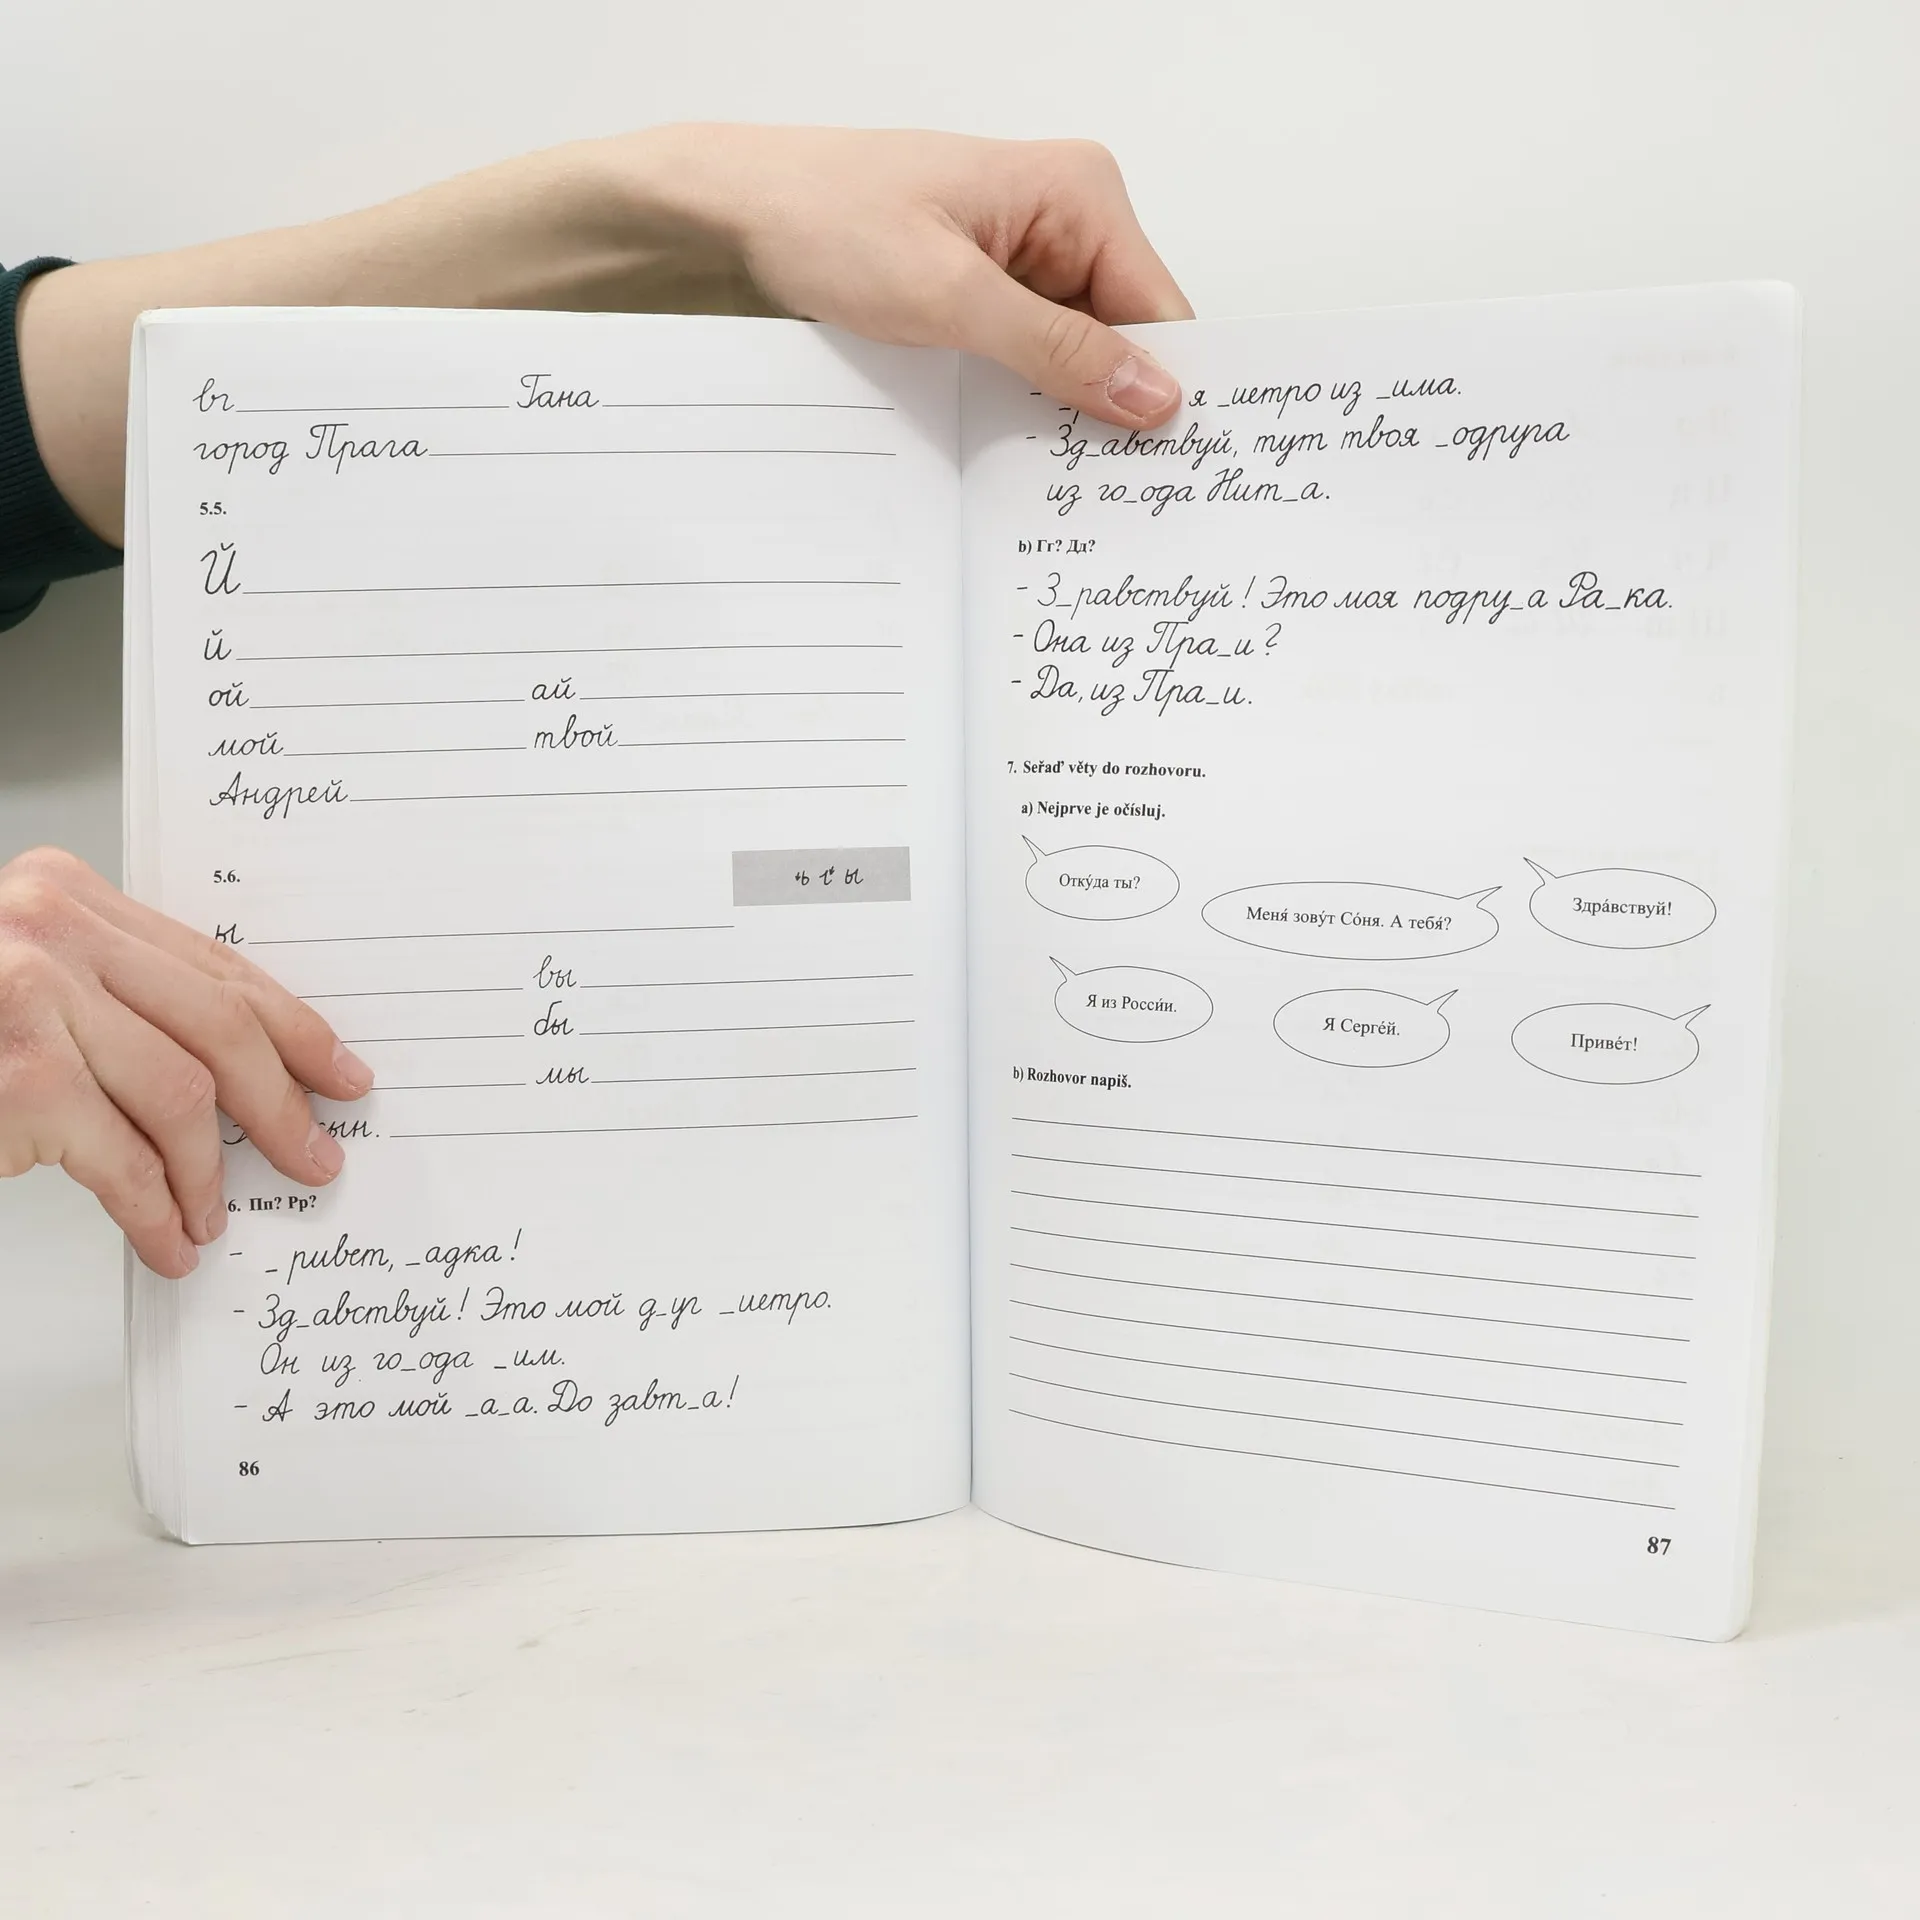 вг Гана
город Прага
5.5.
Й
й
ой ай
мой твой
Андрей
5.6.
ы
ы
вы
бы
мы
сын.
6. Пп? Рр?
- _ривет, _адка!
- Зд_авствуй! Это мой д_уг _иетро.
Он из го_ода _им.
- А это мой _а_а. До завт_а!
86
- я _иетро из _има.
- Зд_авствуй, тут твоя _одруга
из го_ода Нит_а.
b) Гг? Дд?
- З_равствуй! Это моя подру_а Ра_ка.
- Она из Пра_и?
- Да, из Пра_и.
7. Seřaď věty do rozhovoru.
a) Nejprve je očísluj.
Отку́да ты?
Меня́ зову́т Со́ня. А тебя́?
Здра́вствуй!
Я из Росси́и.
Я Серге́й.
Приве́т!
b) Rozhovor napiš.
87